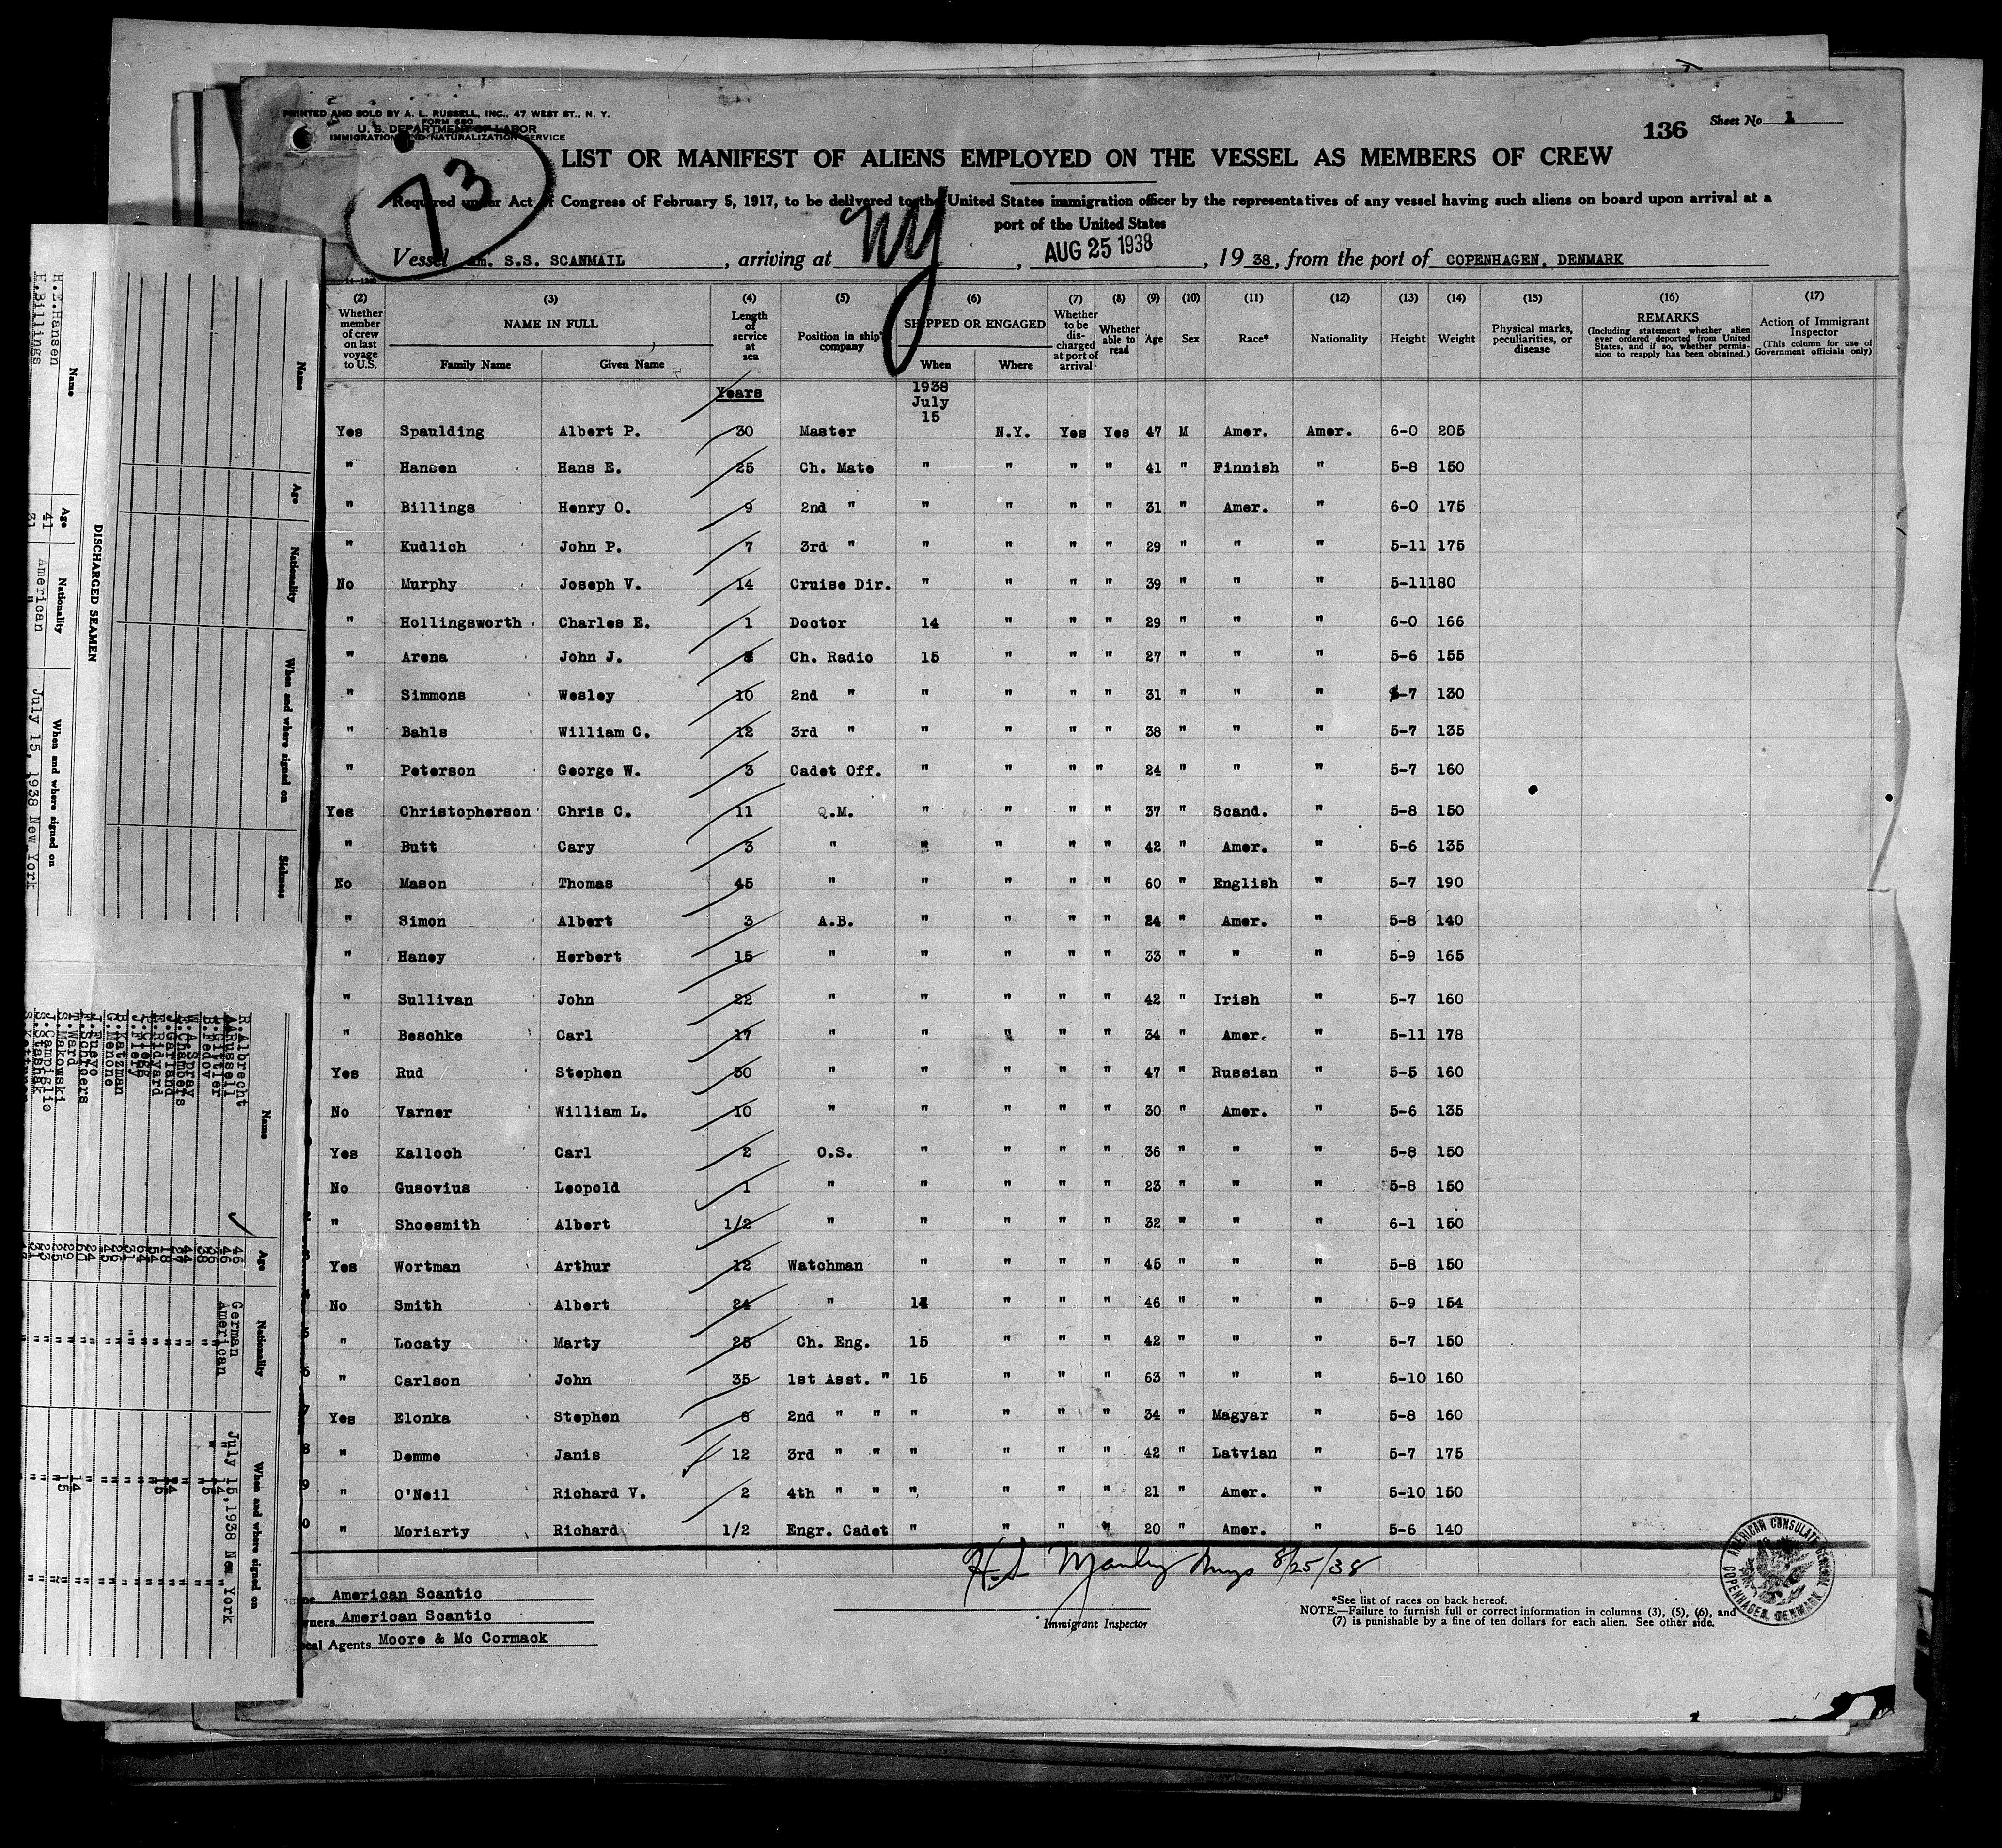 PRINTED AND SOLD BY A. L. RUSSELL, INC., 47 WEST ST., N. Y.
FORM 680
U. S. DEPARTMENT OF LABOR
IMMIGRATION AND NATURALIZATION SERVICE
136 Sheet No 1
73
LIST OR MANIFEST OF ALIENS EMPLOYED ON THE VESSEL AS MEMBERS OF CREW
Required under Act of Congress of February 5, 1917, to be delivered to the United States immigration officer by the representatives of any vessel having such aliens on board upon arrival at a
port of the United States
Vessel Am. S.S. SCANMAIL, arriving at NY, AUG 25 1938, 19 38, from the port of COPENHAGEN, DENMARK
(2) (3) (4) (5) (6) (7) (8) (9) (10) (11) (12) (13) (14) (15) (16) (17)
Whether member of crew on last voyage to U.S. NAME IN FULL Family Name Given Name Length of service at sea Position in ship's company SHIPPED OR ENGAGED When Where Whether to be discharged at port of arrival Whether able to read Age Sex Race* Nationality Height Weight Physical marks, peculiarities, or disease REMARKS (Including statement whether alien ever ordered deported from United States, and if so, whether permission to reapply has been obtained.) Action of Immigrant Inspector (This column for use of Government officials only)
Years 1938 July 15
Yes Spaulding Albert P. 30 Master N.Y. Yes Yes 47 M Amer. Amer. 6-0 205
" Hansen Hans E. 25 Ch. Mate " " " " 41 " Finnish " 5-8 150
" Billings Henry O. 9 2nd " " " " " 31 " Amer. " 6-0 175
" Kudlich John P. 7 3rd " " " " " 29 " " " 5-11 175
No Murphy Joseph V. 14 Cruise Dir. " " " " 39 " " " 5-11 180
" Hollingsworth Charles E. 1 Doctor 14 " " " 29 " " " 6-0 166
" Arena John J. Ch. Radio 15 " " " 27 " " " 5-6 155
" Simmons Wesley 10 2nd " " " " " 31 " " " 5-7 130
" Bahls William C. 12 3rd " " " " " 38 " " " 5-7 135
" Peterson George W. 3 Cadet Off. " " " " 24 " " " 5-7 160
Yes Christopherson Chris C. 11 Q.M. " " " " 37 " Scand. " 5-8 150
" Butt Cary 3 " " " " " 42 " Amer. " 5-6 135
No Mason Thomas 45 " " " " " 60 " English " 5-7 190
" Simon Albert 3 A.B. " " " " 24 " Amer. " 5-8 140
" Haney Herbert 15 " " " " " 33 " " " 5-9 165
" Sullivan John 22 " " " " " 42 " Irish " 5-7 160
" Beschke Carl 17 " " " " " 34 " Amer. " 5-11 178
Yes Rud Stephen 30 " " " " " 47 " Russian " 5-5 160
No Varner William L. 10 " " " " " 30 " Amer. " 5-6 135
Yes Kalloch Carl 2 O.S. " " " " 36 " " " 5-8 150
No Gusovius Leopold 1 " " " " " 23 " " " 5-8 150
" Shoesmith Albert 1/2 " " " " " 32 " " " 6-1 150
Yes Wortman Arthur 12 Watchman " " " " 45 " " " 5-8 150
No Smith Albert 24 " 14 " " " 46 " " " 5-9 154
" Locaty Marty 25 Ch. Eng. 15 " " " 42 " " " 5-7 150
" Carlson John 35 1st Asst. " 15 " " " 63 " " " 5-10 160
Yes Elonka Stephen 8 2nd " " " " " " 34 " Magyar " 5-8 160
" Demme Janis 12 3rd " " " " " " 42 " Latvian " 5-7 175
" O'Neil Richard V. 2 4th " " " " " " 21 " Amer. " 5-10 150
" Moriarty Richard 1/2 Engr. Cadet " " " " 20 " Amer. " 5-6 140
8/25/38
American Scantic
owners American Scantic
Local Agents Moore & Mc Cormack
Immigrant Inspector
*See list of races on back hereof.
NOTE.—Failure to furnish full or correct information in columns (3), (5), (6), and
(7) is punishable by a fine of ten dollars for each alien. See other side.
AMERICAN CONSULATE GENERAL COPENHAGEN, DENMARK
Name Age Nationality When and where signed on Sickness
DISCHARGED SEAMEN
Name Age Nationality When and where signed on
H.E.Hansen 41 American July 15, 1938 New York
H.Billings 31 "
Name Age Nationality When and where signed on
R.Albrecht 46 German July 15,1938 New York
A.Russell 46 American